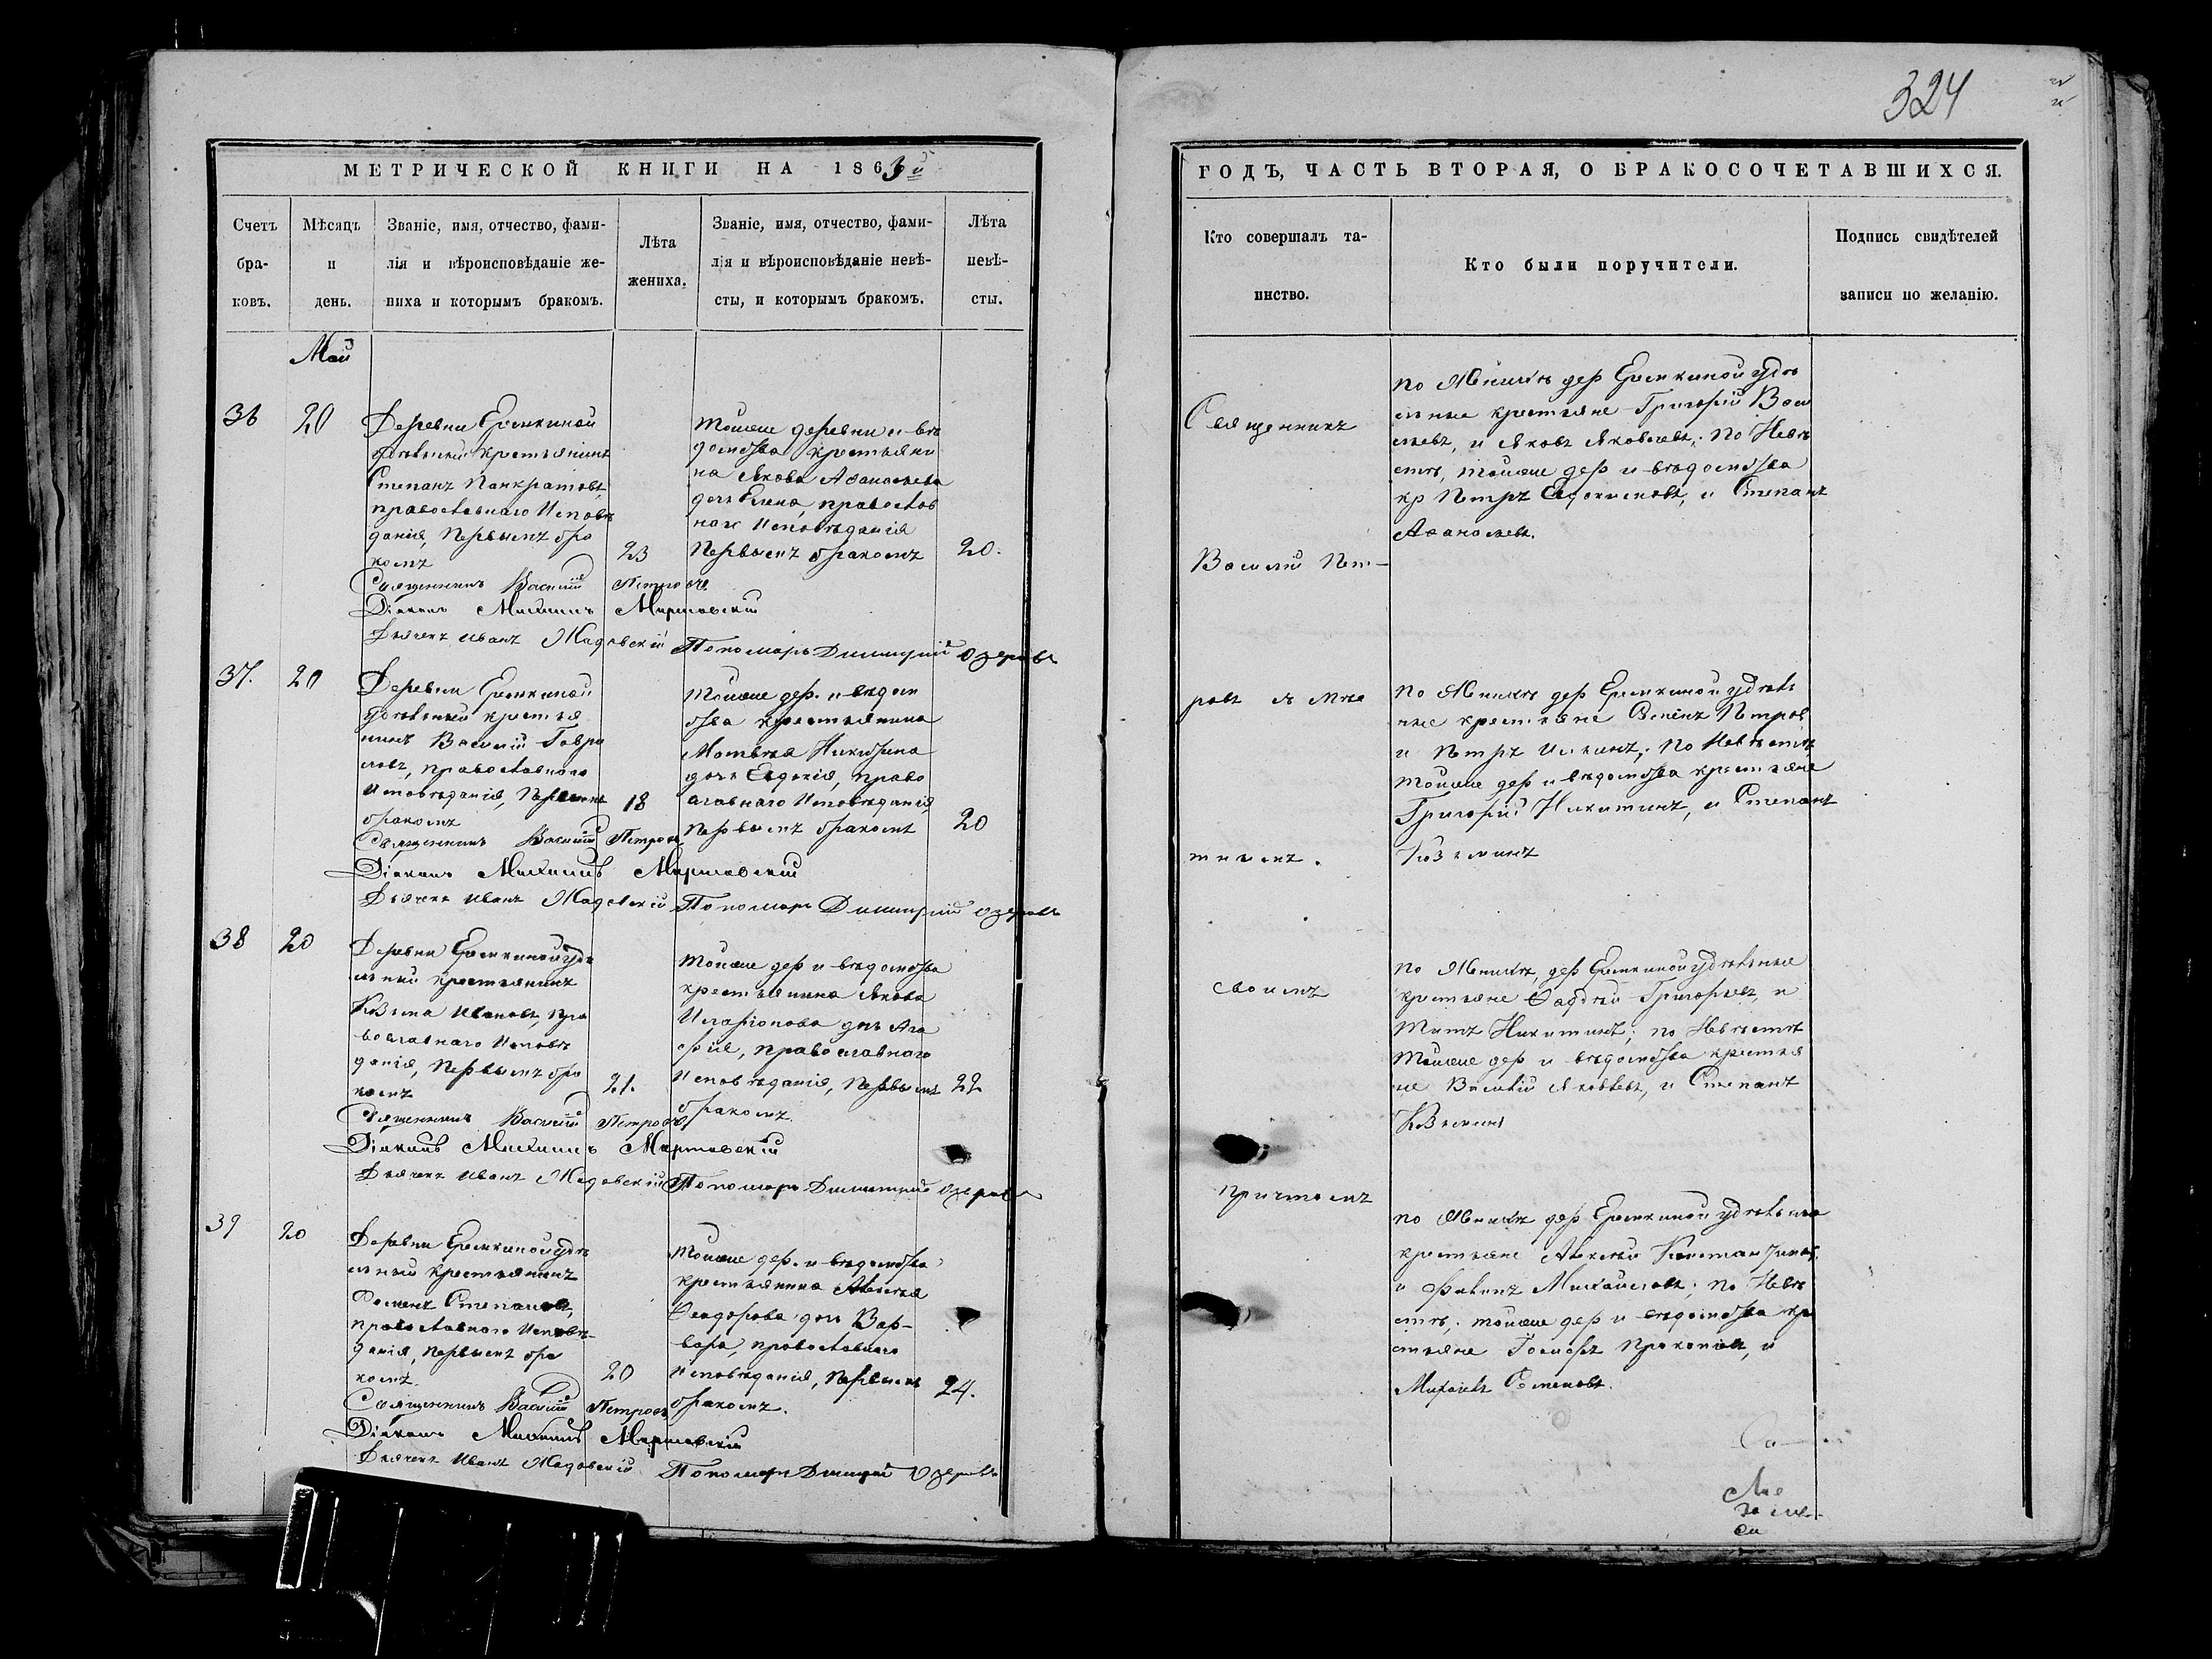 324
МЕТРИЧЕСКОЙ КНИГИ НА 1863й
Счетъ бра-ковъ.
Мѣсяцъ и день.
Званіе, имя, отчество, фами-
лія и вѣроисповѣданіе же-
ниха и которымъ бракомъ.
Лѣта
жениха.
Званіе, имя, отчество, фами-
лія и вѣроисповѣданіе невѣ-
сты, и которымъ бракомъ.
Лѣта
невѣ-
сты.
Май
36 20
Деревни Еремкиной
удѣльный крестьянинъ
Степанъ Панкратовъ,
православнаго Исповѣ
данія, Первымъ бра
комъ
23
тойже деревни и вѣ
домства крестьяни
на Якова Аѳанасьева
дочь Елена, православ
наго Исповѣданія
Первымъ бракомъ
20.
Священникъ Василій Петровъ
Діаконъ Михаилъ
Дьячекъ Иванъ
Пономарь Димитрій Озеровъ
37. 20
Деревни Еремкиной
Удѣльный крестья
нинъ Василій Гаври
ловъ, православнаго
Исповѣданія, Первымъ
бракомъ
18
тойже дер. и вѣдом
ства крестьянина
Матвѣя Никитина
дочь Евдокія, право
славнаго Исповѣданія,
Первымъ бракомъ
20
Священникъ Василій Петровъ
Діаконъ Михаилъ
Дьячекъ Иванъ
Пономарь Димитрій Озеровъ
38 20
Деревни Еремкиной удѣ
льный крестьянинъ
Козьма Ивановъ, пра
вославнаго Исповѣ
данія, Первымъ бра
комъ
21.
тойже дер и вѣдомства
крестьянина Якова
Иларіонова дочь Ага
фія, православнаго
Исповѣданія, Первымъ
бракомъ.
22
Священникъ Василій Петровъ
Діаконъ Михаилъ
Дьячекъ Иванъ
Пономарь Димитрій Озеровъ
39 20
Деревни Еремкиной удѣ
льный крестьянинъ
Степановъ,
православнаго Исповѣ-
данія, первымъ бра
комъ.
20
тойже дер. и вѣдомства
крестьянина Алексѣя
Ѳеодорова дочь Вар-
вара, православнаго
Исповѣданія, Первымъ
бракомъ.
24.
Священникъ Василій Петровъ
Діаконъ Михаилъ
Дьячекъ Иванъ
Пономарь Димитрій Озеровъ
ГОДЪ, ЧАСТЬ ВТОРАЯ, О БРАКОСОЧЕТАВШИХСЯ.
Кто совершалъ та-
инство.
Кто были поручители.
Подпись свидѣтелей
записи по желанію.
Священникъ
Василій Пет-
ровъ съ
своимъ
причтомъ
по Женихѣ дер Еремкиной удѣ
льные крестьяне Григорій Васи
льевъ, и Яковъ Яковлевъ; по Невѣ
стѣ, тойже дер и вѣдомства
кр Петръ Евдокимовъ, и Степанъ
Аѳанасьевъ.
по Женихѣ дер Еремкиной удѣль
ные крестьяне Петров
и Петръ ; по Невѣстѣ
тойже дер и вѣдомства крестьяне
Григорій Никитинъ, и Степанъ
Козьминъ
по Женихѣ, дер Еремкиной удѣльные
крестьяне Григорьевъ, и
Титъ Никитинъ; по Невѣстѣ
тойже дер и вѣдомства крестья
не Василій Яковлевъ, и Степанъ
Козьминъ
по Женихѣ дер Еремкиной удѣльные
крестьяне Алексѣй Константинов.
и Филипъ Михайловъ; по Невѣ
стѣ; тойже дер и вѣдомства кре
стьяне Прокопьевъ, и
Семеновъ.